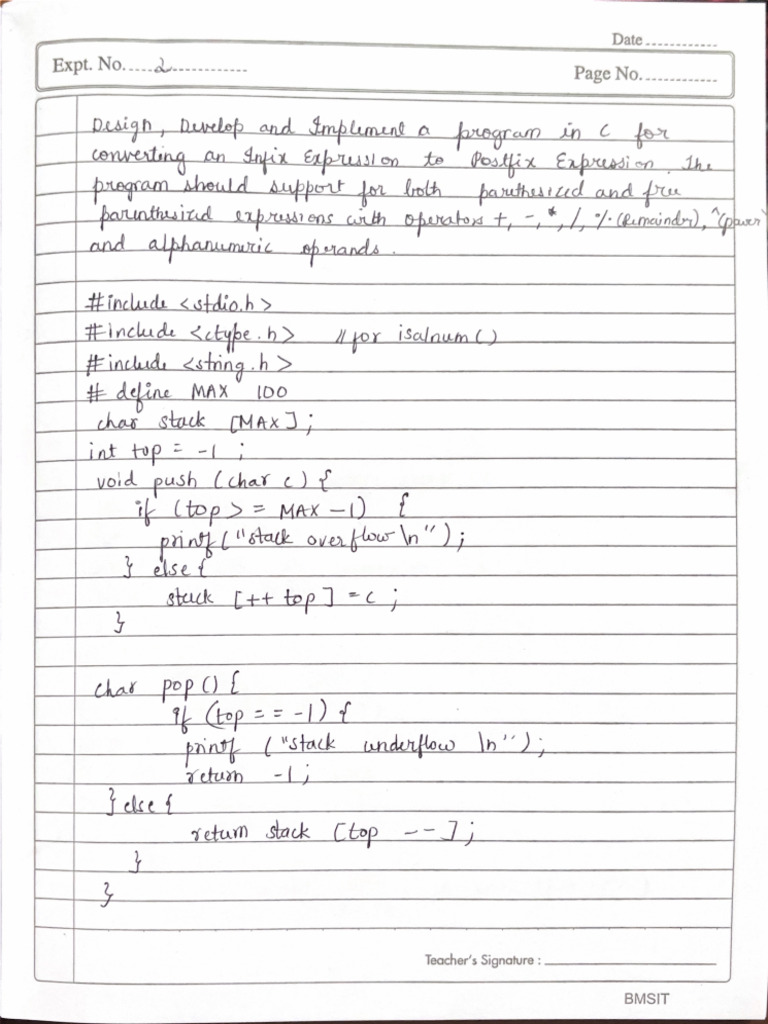 Date............
Expt. No.....2.............
Page No.............
Design, Develop and Implement a program in C for
converting an Infix Expression to Postfix Expression. The
program should support for both parethesized and free
parenthesized expressions with operators +, -, *, /, % (Remainder), ^(power)
and alphanumeric operands.
#include <stdio.h>
#include <ctype.h> // for isalnum()
#include <string.h>
# define MAX 100
char stack [MAX];
int top = -1 ;
void push (char c) {
if (top >= MAX -1) {
printf("stack overflow \n");
} else {
stack [++ top] = c ;
}
char pop () {
if (top == -1) {
printf ("stack underflow \n");
return -1;
} else {
return stack [top --];
}
}
Teacher's Signature :
BMSIT